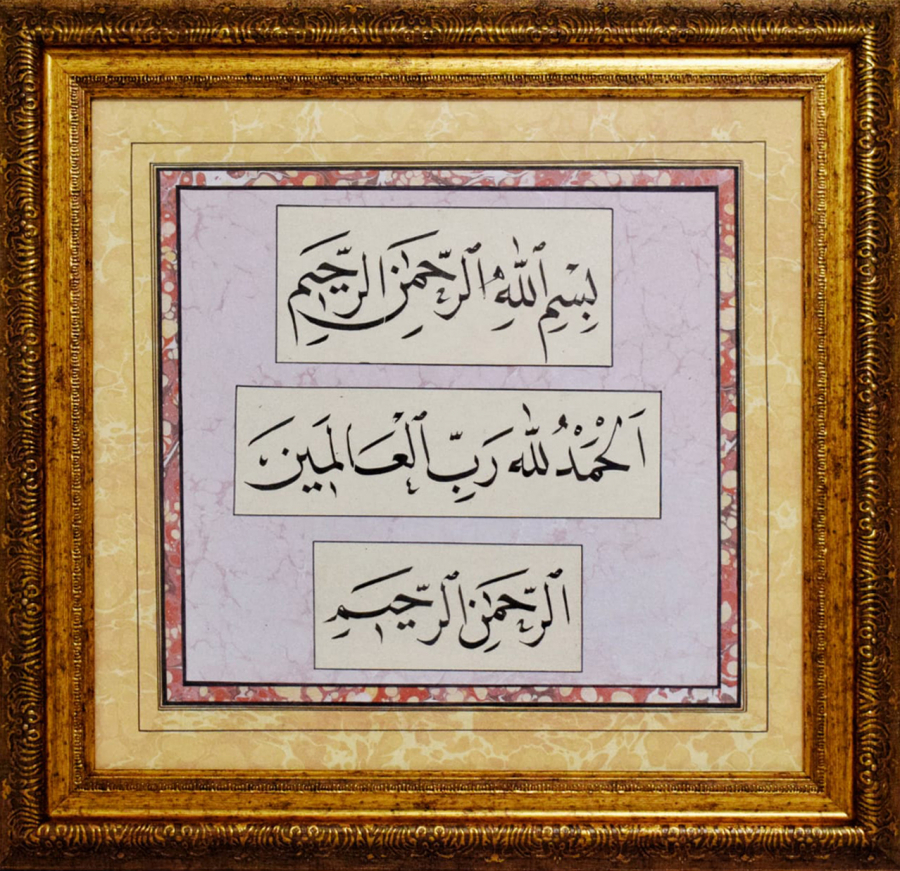 بِسْمِ ٱللّٰهِ ٱلرَّحْمٰنِ ٱلرَّحِيمِ
اَلْحَمْدُ لِلّٰهِ رَبِّ ٱلْعَالَمِينَ
اَلرَّحْمٰنِ ٱلرَّحِيمِ